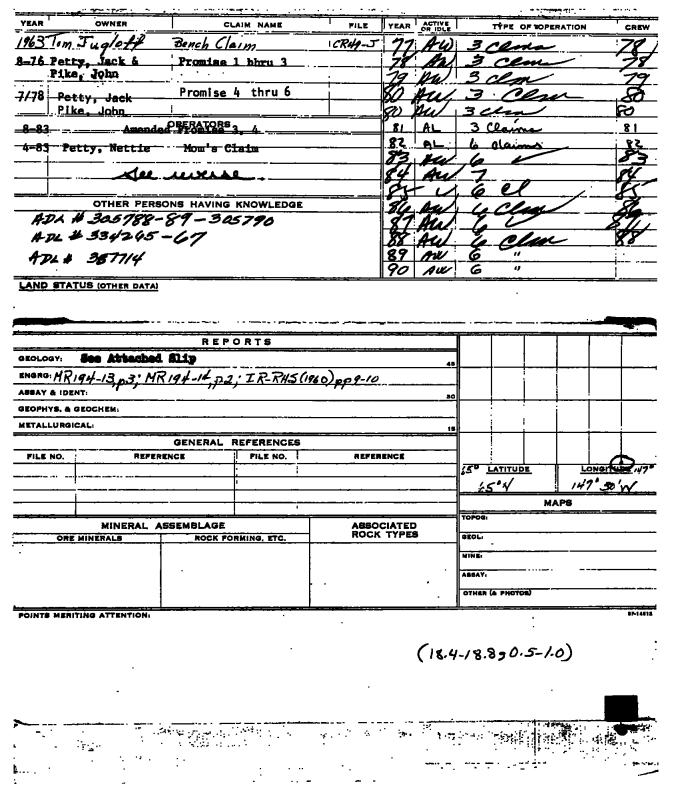 YEAR OWNER CLAIM NAME FILE YEAR ACTIVE OR IDLE TYPE OF OPERATION CREW
1963 Tom Bench Claim 77 AW 3 Clms 78
8-76 Petty, Jack & Promise 1 thru 3 78 AW 3 Clms 78
Pike, John 79 AW 3 clm 79
7/78 Petty, Jack Promise 4 thru 6 80 AW 3 Clm 80
Pike, John 80 AW 3 clm 80
OPERATORS
8-83 Amended Promise 3, 4 81 AL 3 Claims 81
4-83 Petty, Nettie Mom's Claim 82 AL 6 claims 82
83 AW 6 ✓ 83
See reverse. 84 AW 7 84
85 ✓ 6 Cl 85
OTHER PERSONS HAVING KNOWLEDGE 86 AW 6 Clms 86
ADL # 305788-89-305790 87 AW 6
ADL # 334265-67 88 AW 6 Clms 88
ADL # 357714 89 AW 6 "
90 AW 6 "
LAND STATUS (OTHER DATA)
REPORTS
GEOLOGY: See Attached Slip 45
ENGRG: MR194-13, p3; MR194-14, p2; IR-RHS(1960) pp9-10
ASSAY & IDENT: 30
GEOPHYS. & GEOCHEM:
METALLURGICAL: 15
GENERAL REFERENCES
FILE NO. REFERENCE FILE NO. REFERENCE
65° LATITUDE LONGITUDE 147°
65°N 147° 30'W
MAPS
MINERAL ASSEMBLAGE ASSOCIATED ROCK TYPES
ORE MINERALS ROCK FORMING, ETC.
TOPOG:
GEOL:
MINE:
ASSAY:
OTHER (& PHOTOS)
POINTS MERITING ATTENTION:
(18.4-18.8, 0.5-1.0)